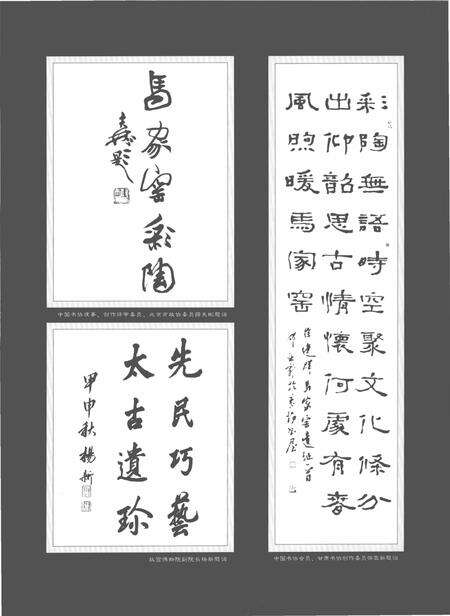 馬家窑彩陶
中国书协理事、创作评审委员、北京市政协委员薛夫彬题词
先民巧藝
太古遺珍
甲申秋楊新
故宫博物院副院长杨新题词
彩陶無語時空聚文化條分
出仰韶思古情懷何處有春
風煦暖馬家窑
中国书协会员、甘肃书协创作委员